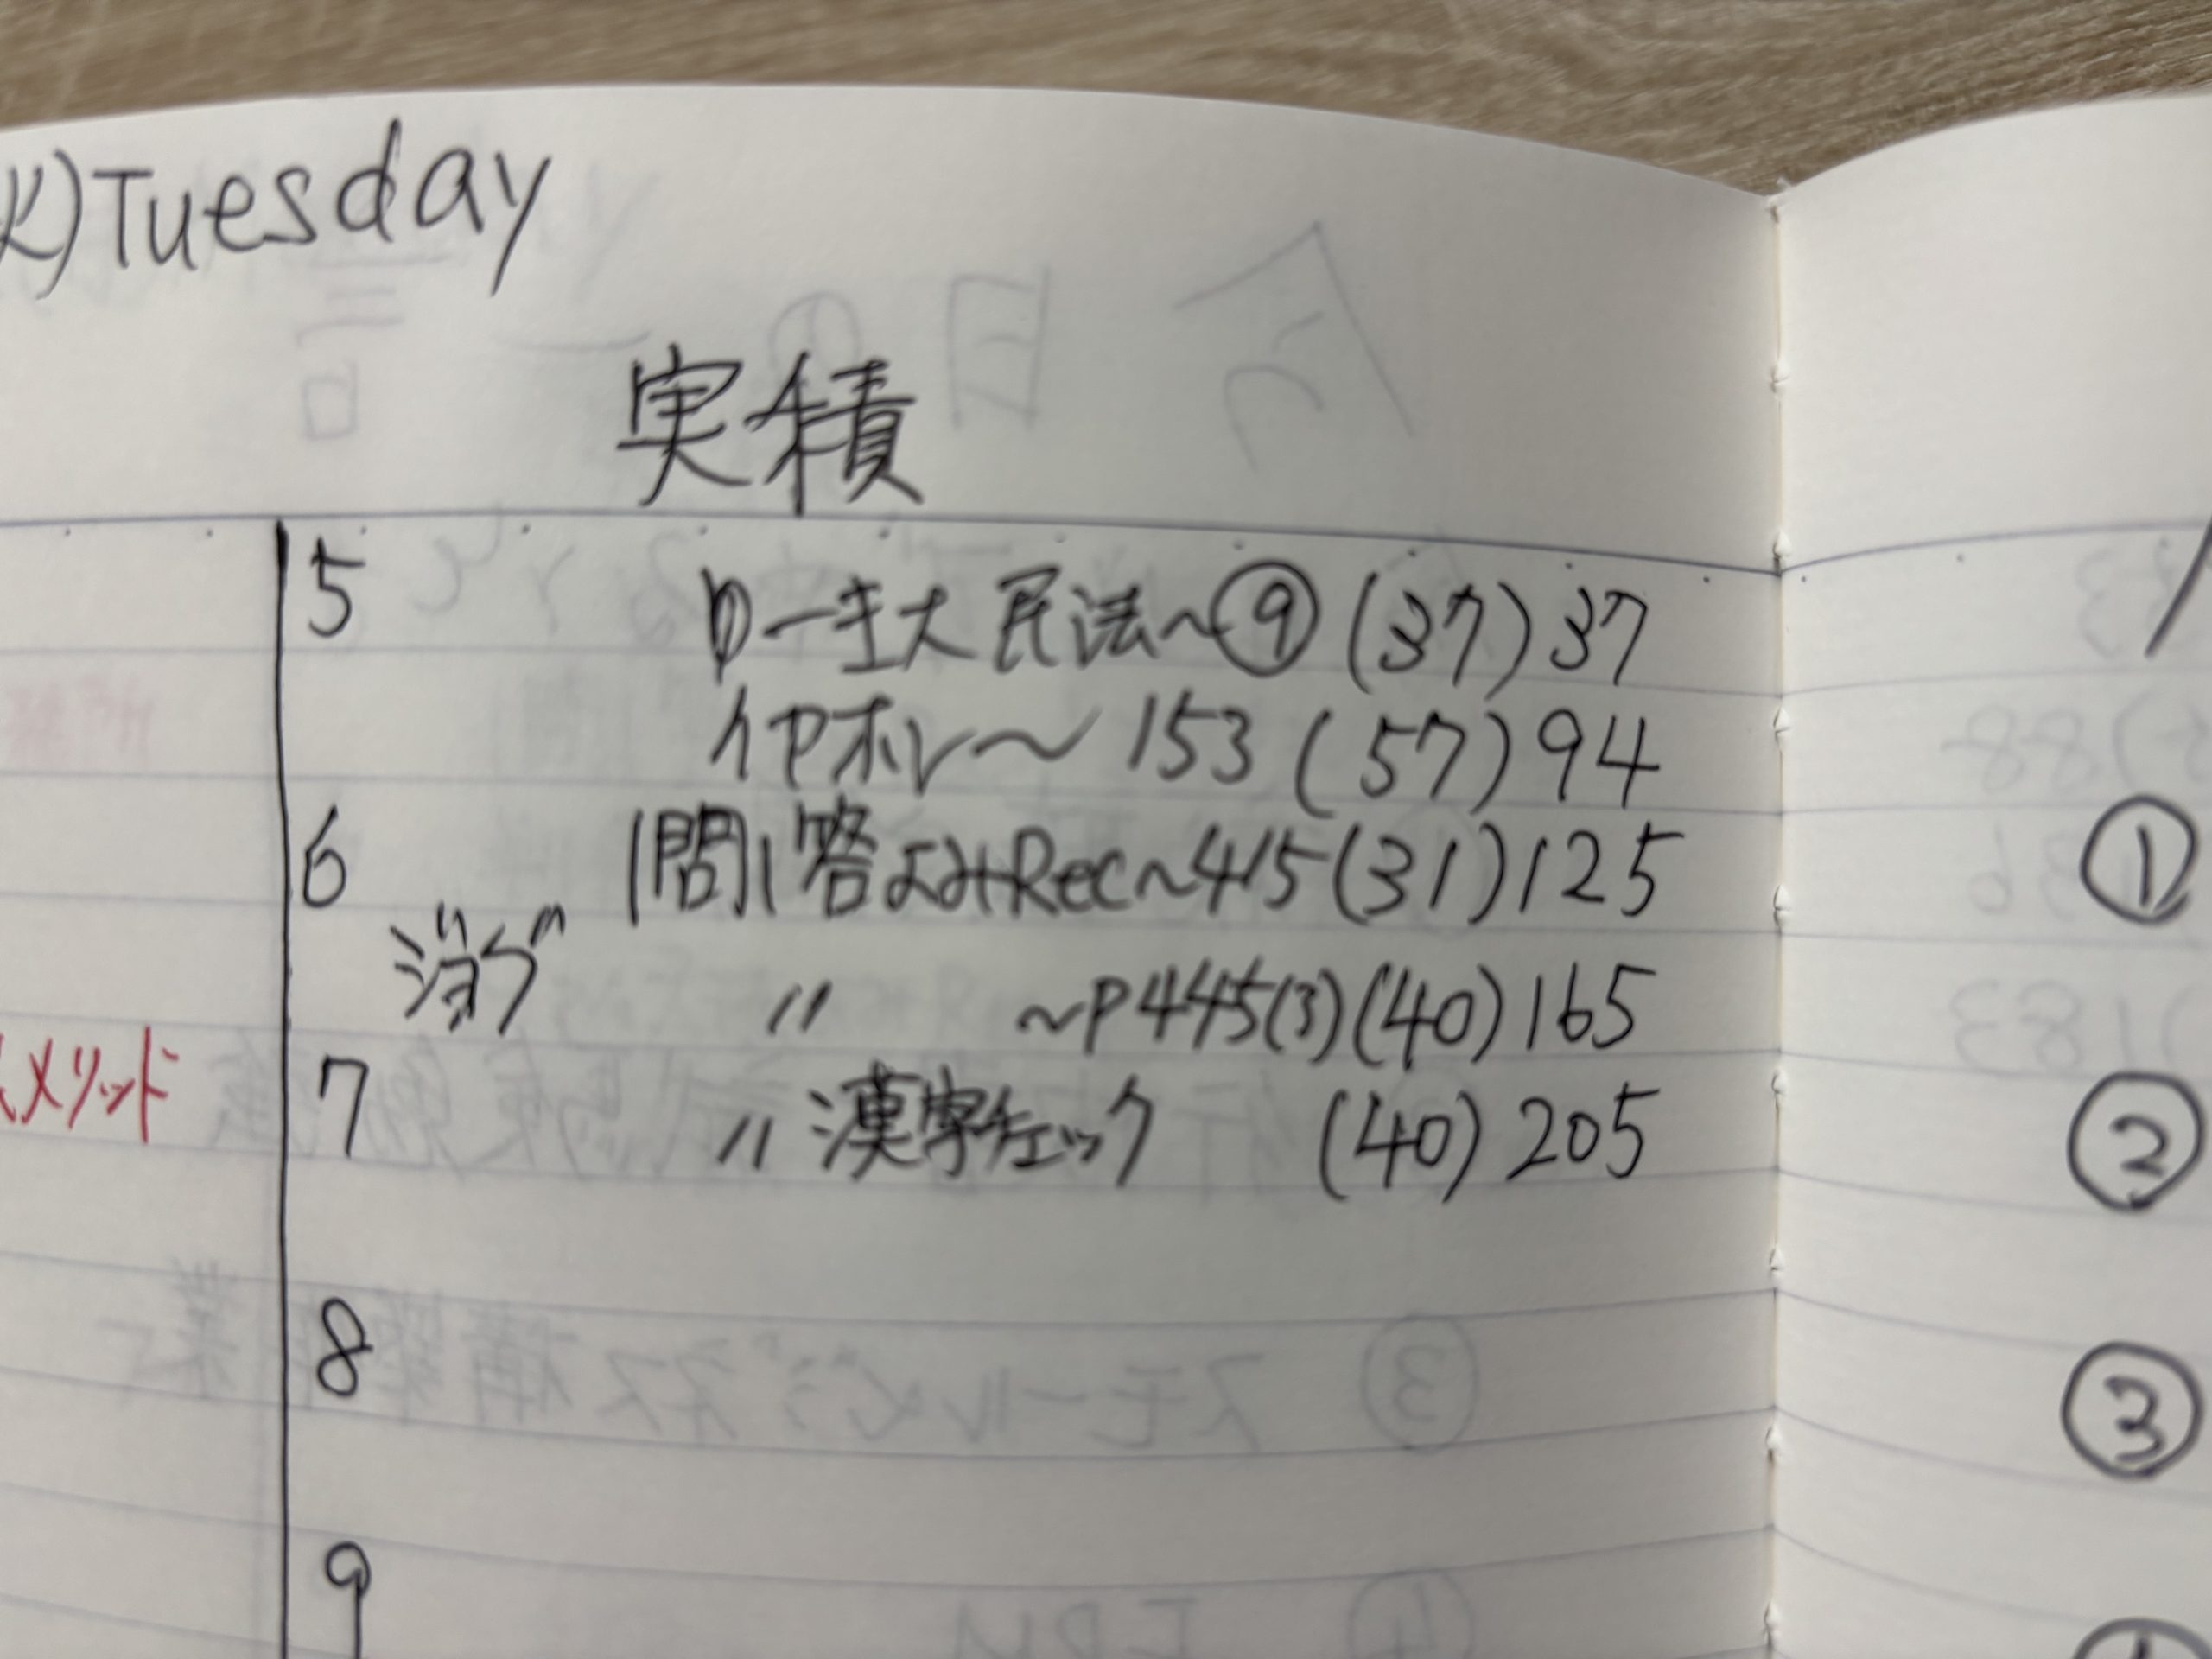 火)Tuesday
実積
5 ゆーき大 民法~⑨ (37) 37
イヤホン~ 153 (57) 94
6 1問1答よみRec~415(31)125
ジョグ 〃 ~P445(3)(40)165
メリット
7 〃 漢字チェック (40) 205
8
9
①
②
③